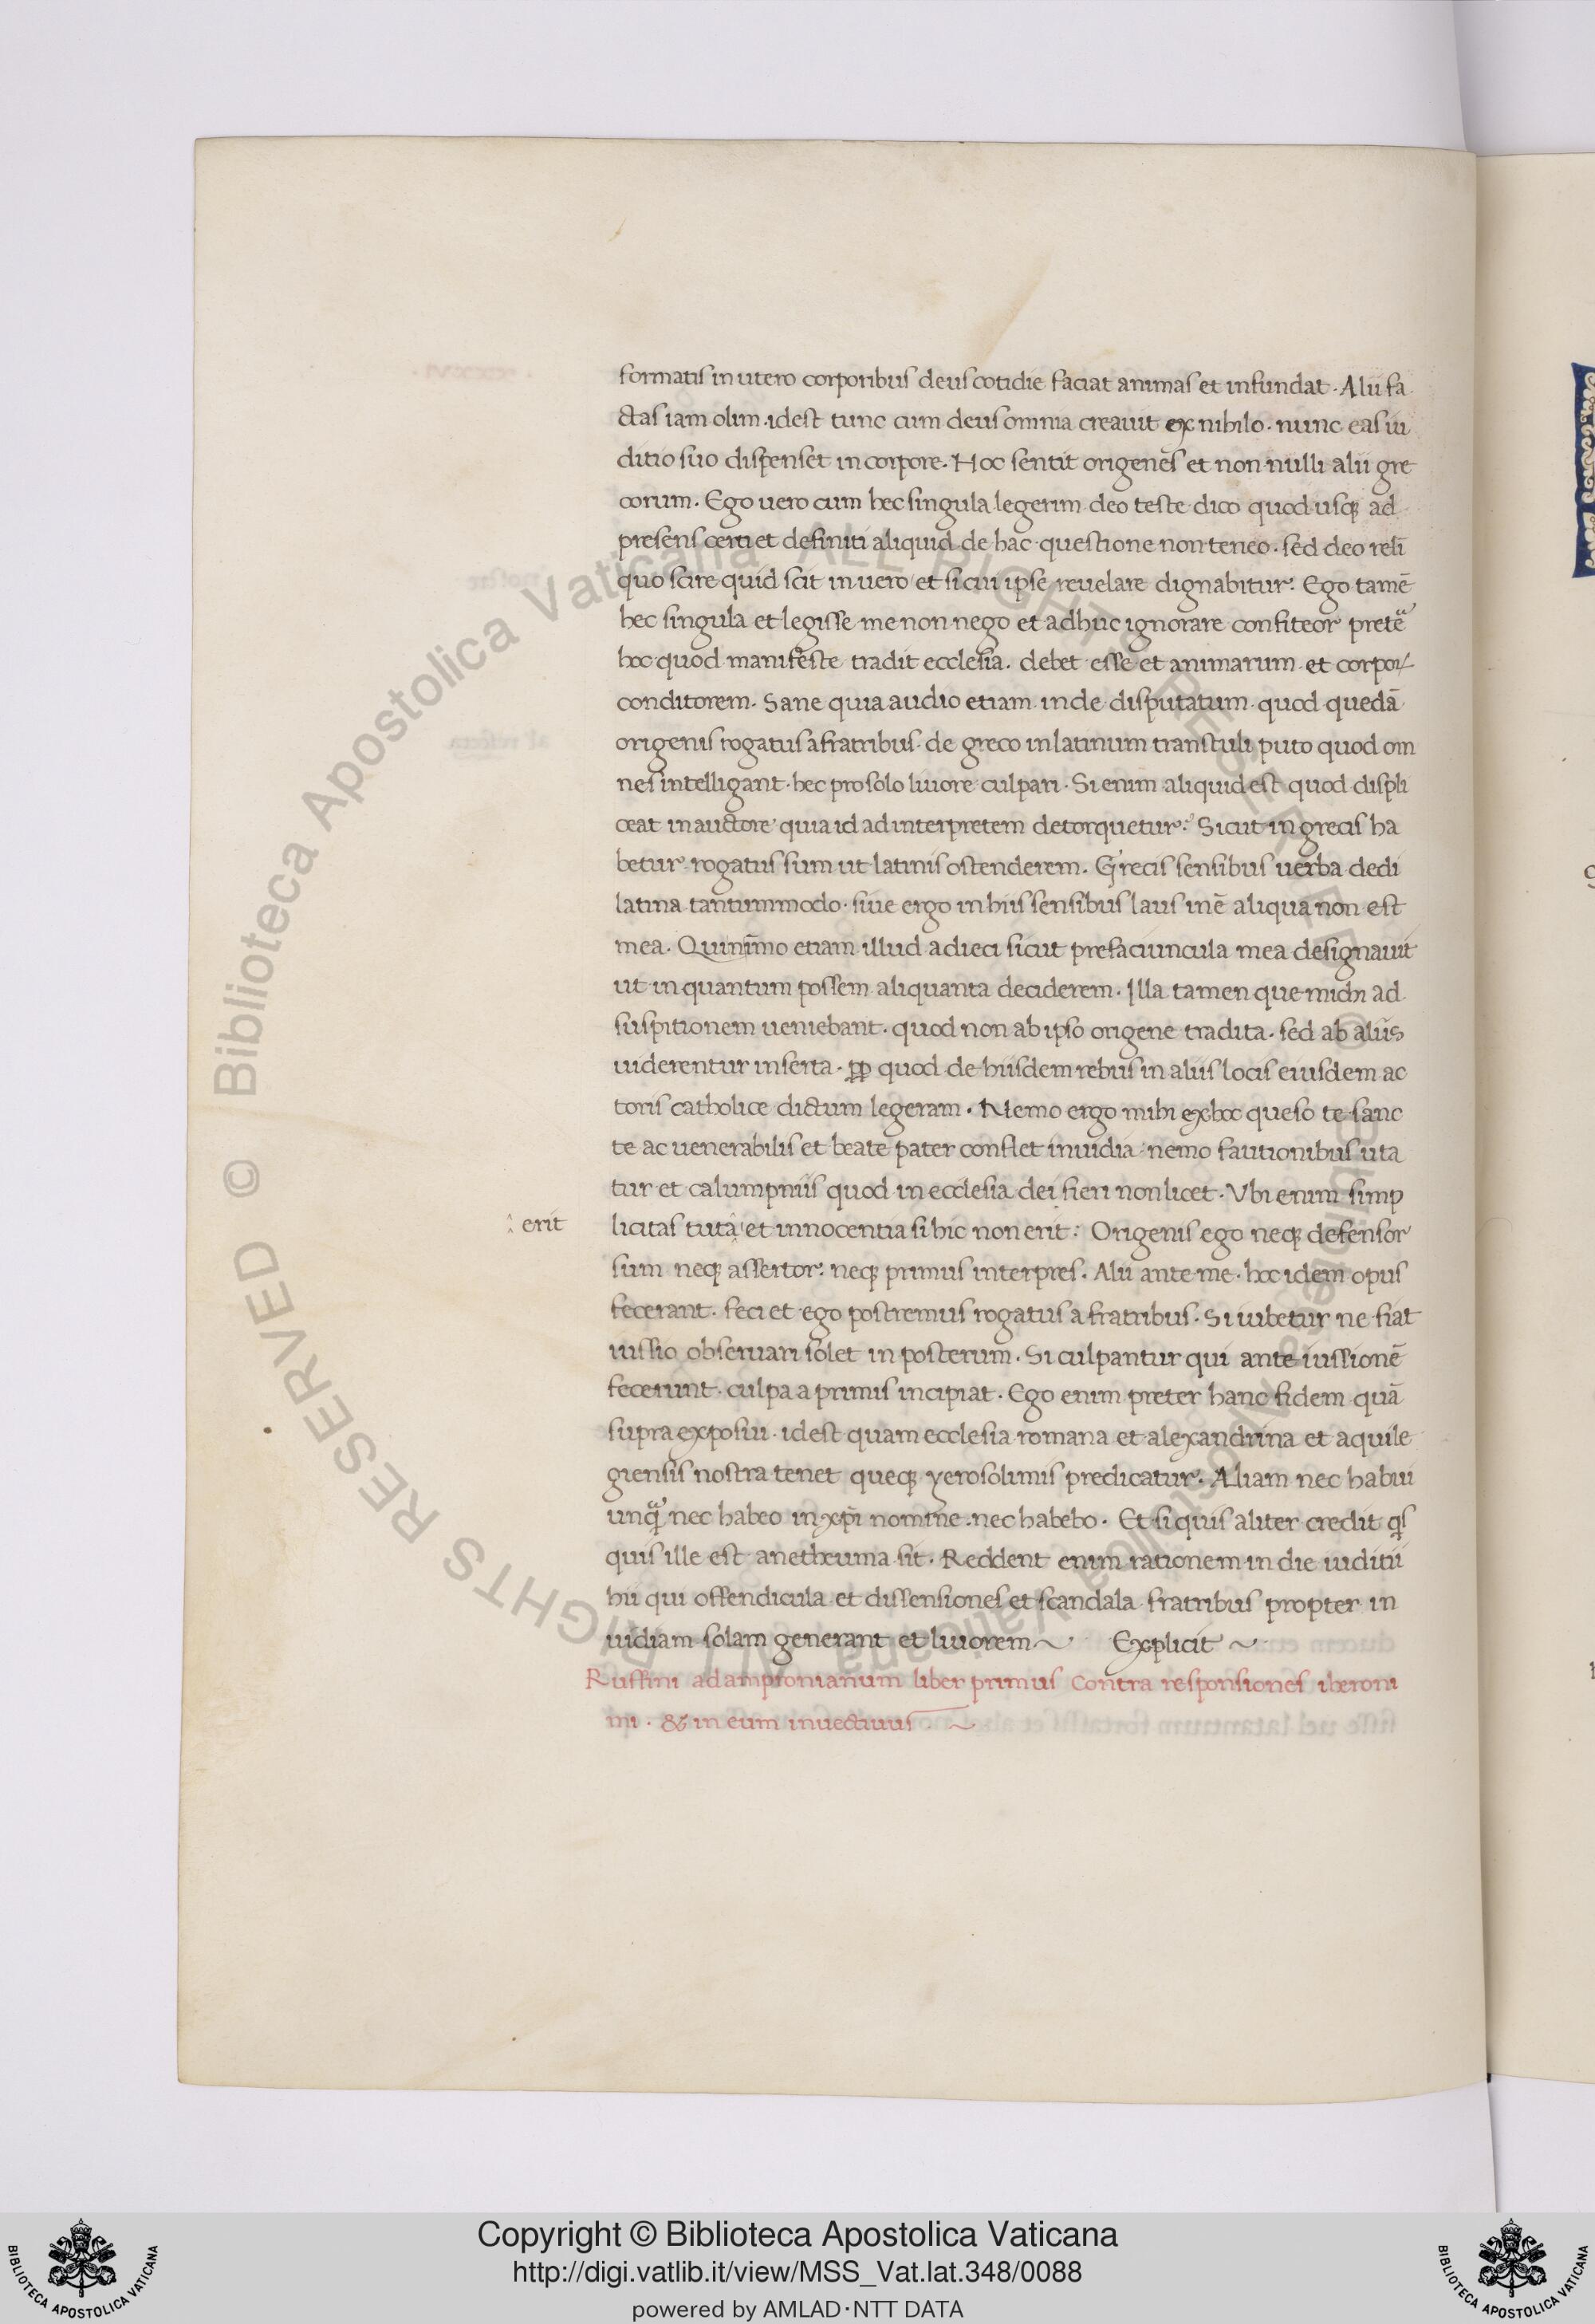 formatis in utero corporibus deus cotidie faciat animas et infundat · Alii fa
ctas iam olim · idest tunc cum deus omnia creauit ex nihilo · nunc eas iu
ditio suo dispenset in corpore · Hoc sentit origenes et non nulli alii gre
corum · Ego uero cum hec singula legerim deo teste dico quod usq; ad
presens certi et definiti aliquid de hac questione non teneo · sed deo reli
quo scire quid scit in uero et si cui ipse reuelare dignabitur · Ego tamē
hec singula et legisse me non nego et adhuc ignorare confiteor pretē
hoc quod manifeste tradit ecclesia · debet esse et animarum et corpoꝝ
conditorem · Sane quia audio etiam inde disputatum quod quedā
origenis rogatus a fratribus de greco in latinum transtuli puto quod om
nes intelligant · hec pro solo liuore culpari · Si enim aliquid est quod displi
ceat in auctore quia id ad interpretem detorquetur · Sicut in grecis ha
betur rogatus sum ut latinis ostenderem · Grecis sensibus uerba dedi
latina tantummodo · siue ergo in hiis sensibus laus inē aliqua non est
mea · Quinīmo etiam illud adieci sicut prefaciuncula mea designauit
ut in quantum possem aliquanta deciderem · Illa tamen que michi ad
suspitionem ueniebant · quod non ab ipso origene tradita · sed ab aliis
uiderentur inserta · ꝓp quod de hiisdem rebus in aliis locis eiusdem ac
toris catholice dictum legeram · Nemo ergo mihi ex hoc queso te sanc
te ac uenerabilis et beate pater conflet inuidia · nemo fautionibus uta
tur et calumpniis quod in ecclesia dei fieri non licet · Vbi enim simp
^ erit
licitas tuta ^ et innocentia si hic non erit : Origenis ego neq; defensor
sum neq; assertor · neq; primus interpres · Alii ante me · hoc idem opus
fecerant · feci et ego postremus rogatus a fratribus · Si iubetur ne fiat
iussio obseruari solet in posterum · Si culpantur qui ante iussionē
fecerunt · culpa a primis incipiat · Ego enim preter hanc fidem quā
supra exposui · idest quam ecclesia romana et alexandrina et aquile
giensis nostra tenet queq; yerosolimis predicatur · Aliam nec habui
unq̃ nec habeo in xp̄i nomine · nec habebo · Et si quis aliter credit q̄s
quis ille est anetheuma sit · Reddent enim rationem in die iuditii
hii qui offendicula et dissensiones et scandala fratribus propter in
uidiam solam generant et liuorem ~ Explicit ~
Ruffini ad ampronianum liber primus Contra responsiones iheroni
mi · & in eum inuectiuus · ~
© Biblioteca Apostolica Vaticana ALL RIGHTS RESERVED
Copyright © Biblioteca Apostolica Vaticana
http://digi.vatlib.it/view/MSS_Vat.lat.348/0088
powered by AMLAD·NTT DATA
BIBLIOTECA APOSTOLICA VATICANA
BIBLIOTECA APOSTOLICA VATICANA